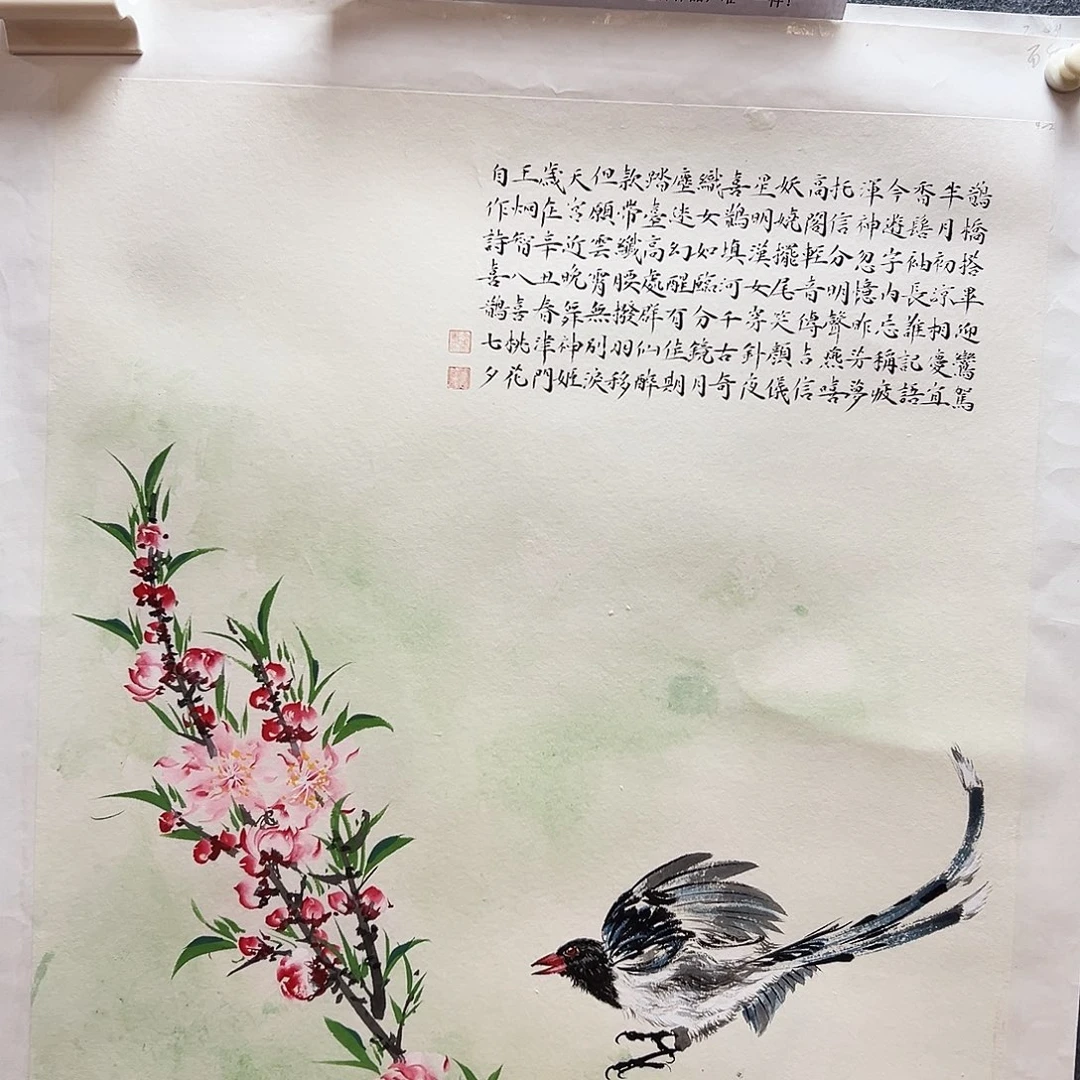 鵲橋搭畢迎鸞駕
半月初涼相憂宜
香鬟袖長難記語
今遊字內忘稱疲
渾神忽憶昨芳夢
托信分明聲燕嘻
高閣輕音傳吉信
妖嬈擺尾笑顏儀
星明漢女穿針夜
喜鵲填河千古奇
織女如臨分鏡月
塵迷幻醒有佳期
踏臺高處群仙醉
款帶纖腰撥羽移
但願雲霄無別淚
天宮近晚神姬
歲在辛丑春津門
王炯智八喜桃花
自作詩喜鵲七夕